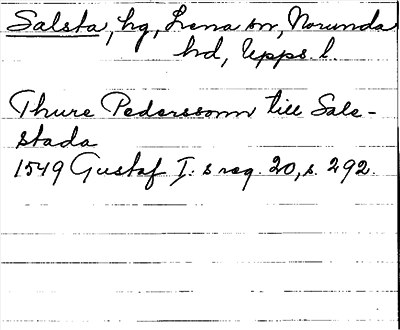 Salsta, hg, Lena sn, Norunda
hd, Upps. l.
Thure Pederssonn till Sale-
stada
1549 Gustaf I:s reg. 20, s. 292.